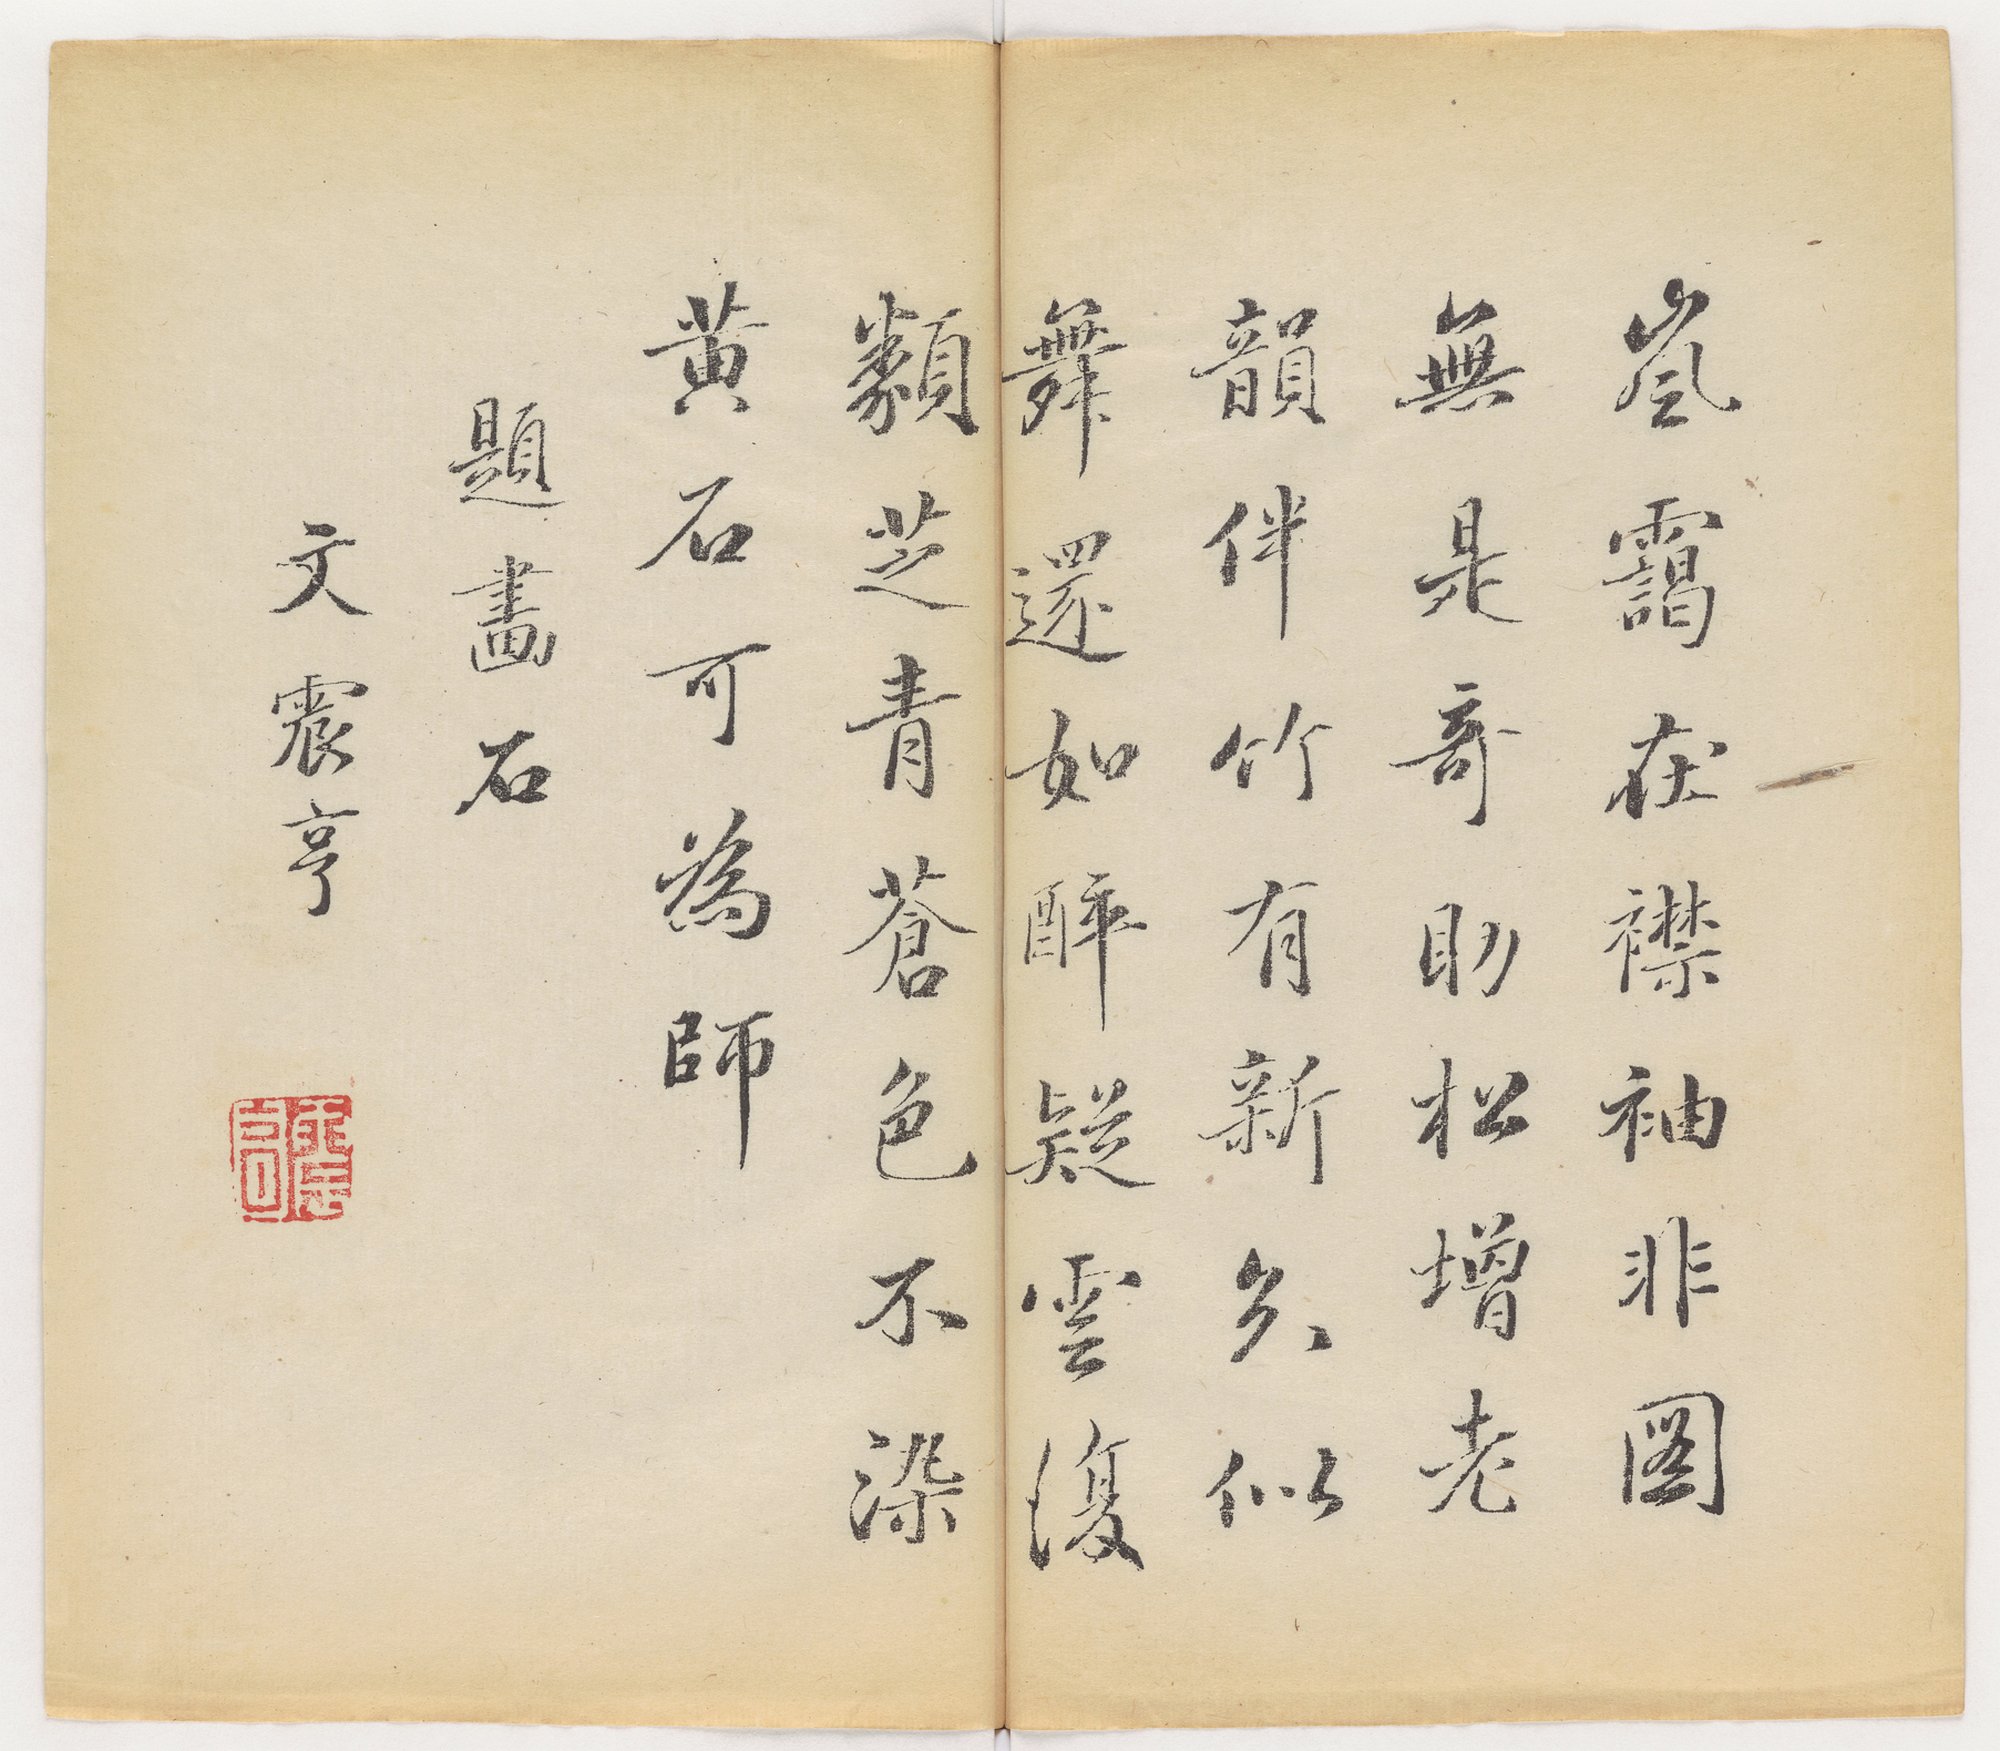 嵐靄在襟袖非圖
無是竒助松增老
韻伴竹有新似
舞還如醉疑雲復
類芝青蒼色不染
黃石可為師
題畫石
文震亨